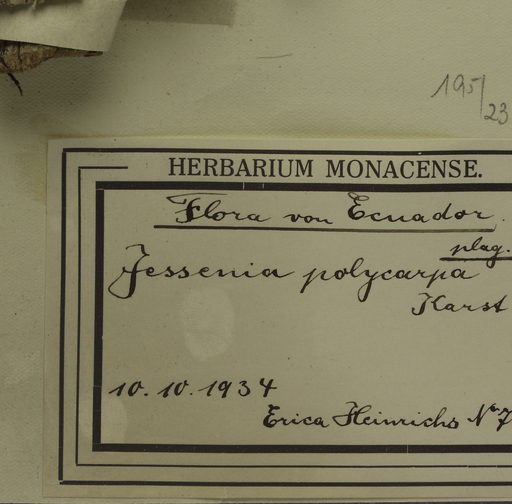 195/23
HERBARIUM MONACENSE.
Flora von Ecuador.
plag.
Jessenia polycarpa
Karst
10.10.1934
Erica Heinrichs No 7